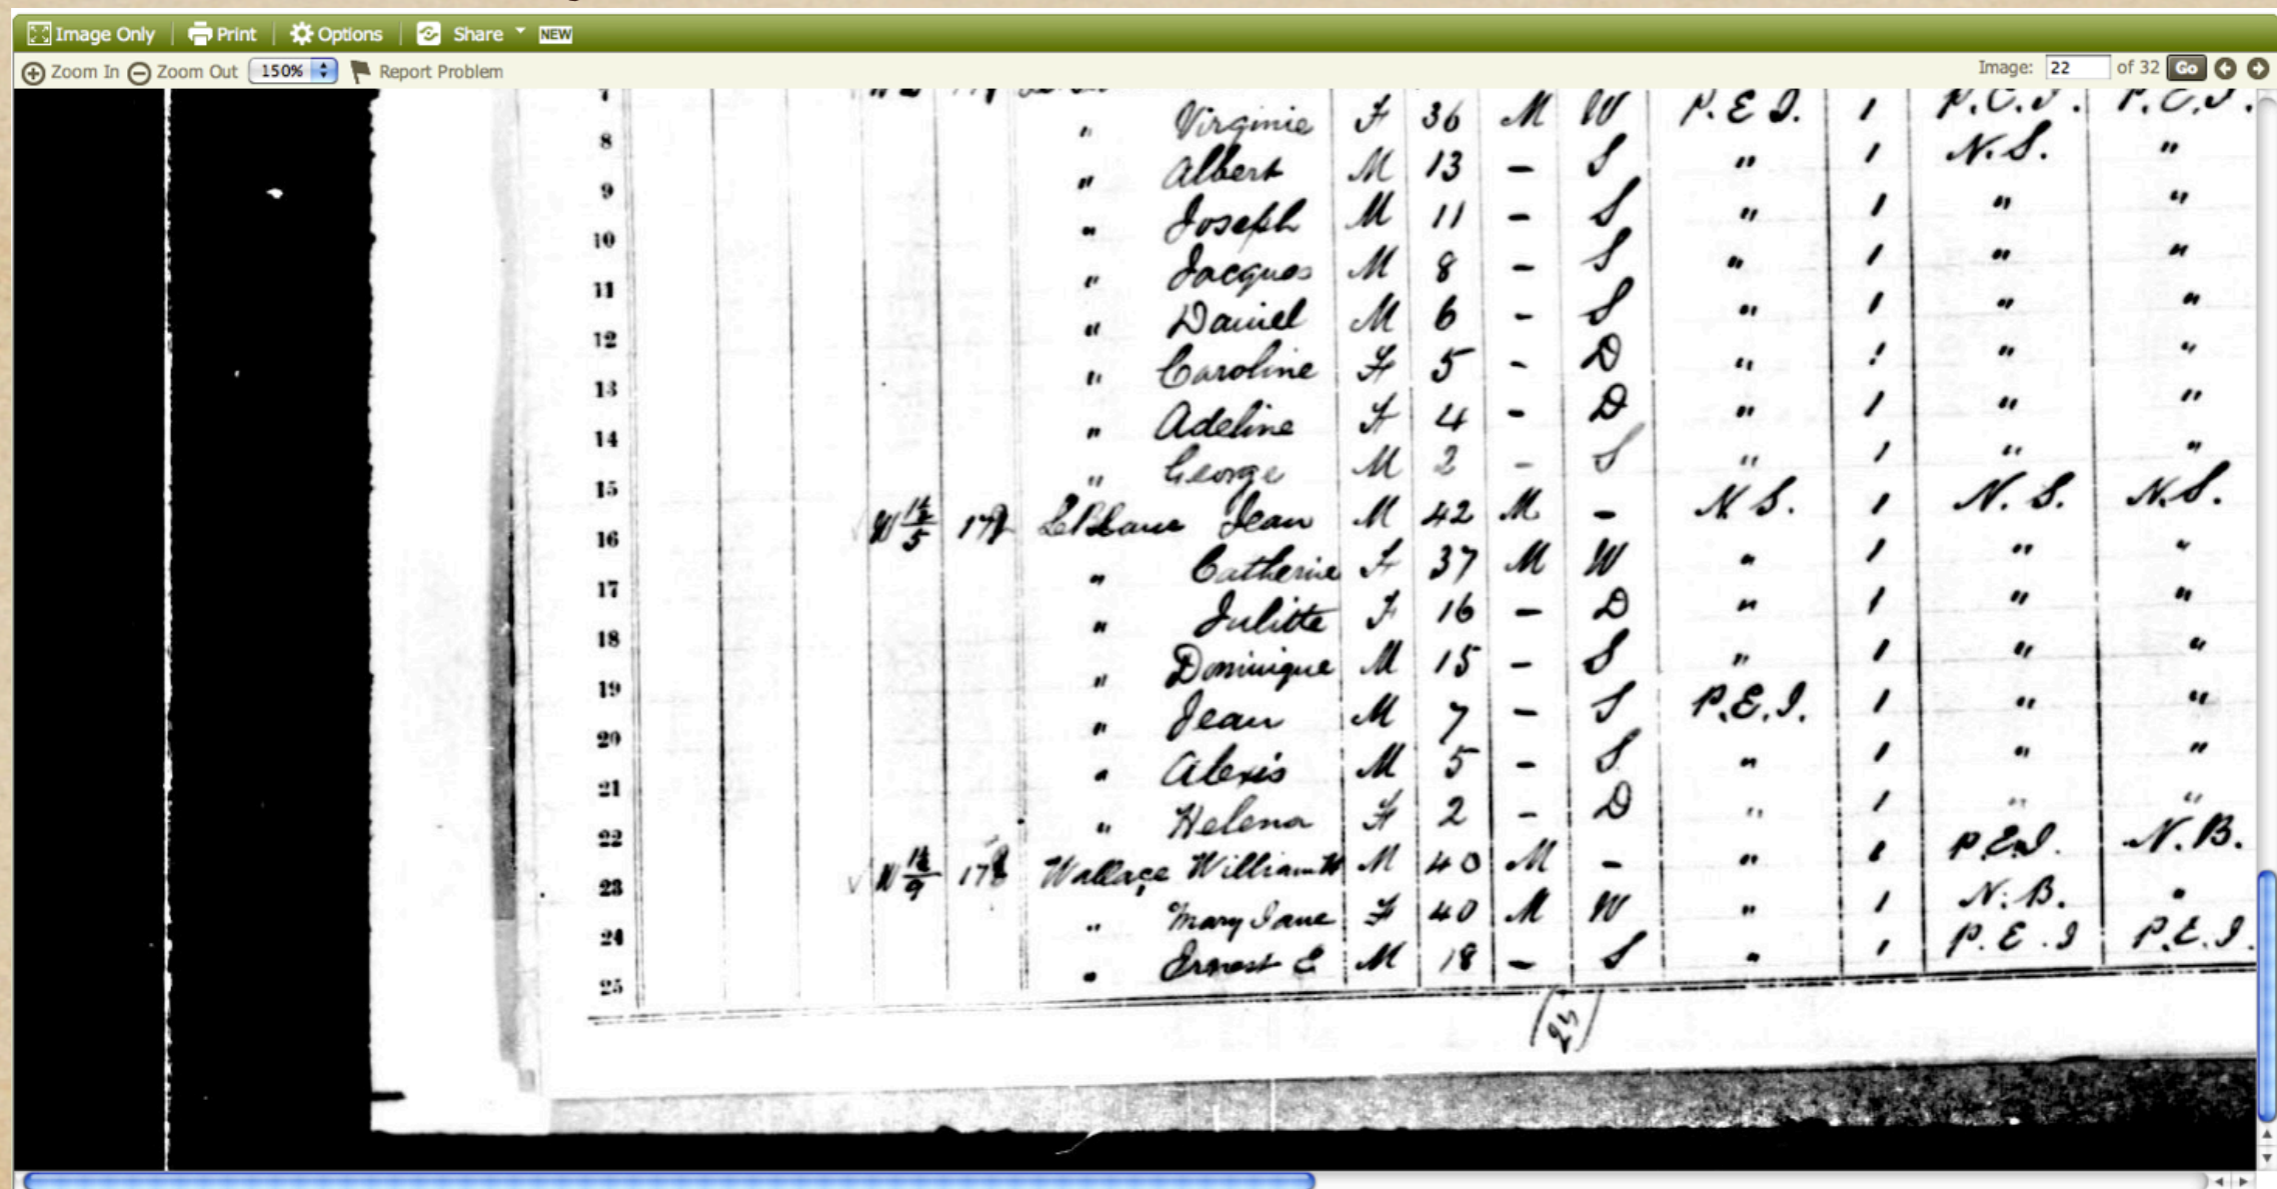 Image Only Print Options Share NEW
Zoom In Zoom Out 150% Report Problem Image: 22 of 32 Go
7
8 " Virginie F 36 M W P.E.I. 1 P.E.I. P.E.I.
9 " Albert M 13 - S " 1 N.S. "
10 " Joseph M 11 - S " 1 " "
11 " Jacques M 8 - S " 1 " "
12 " Daniel M 6 - S " 1 " "
13 " Caroline F 5 - D " 1 " "
14 " Adeline F 4 - D " 1 " "
15 " George M 2 - S " 1 " "
16 LeBlanc Jean M 42 M - N.S. 1 N.S. N.S.
17 " Catherine F 37 M W " 1 " "
18 " Julitte F 16 - D " 1 " "
19 " Dominique M 15 - S " 1 " "
20 " Jean M 7 - S P.E.I. 1 " "
21 " Alexis M 5 - S " 1 " "
22 " Helena F 2 - D " 1 " "
23 Wallace William M 40 M - " 1 P.E.I. N.B.
24 " Mary Jane F 40 M W " 1 N.B. "
25 " Ernest E M 18 - S " 1 P.E.I P.E.I.